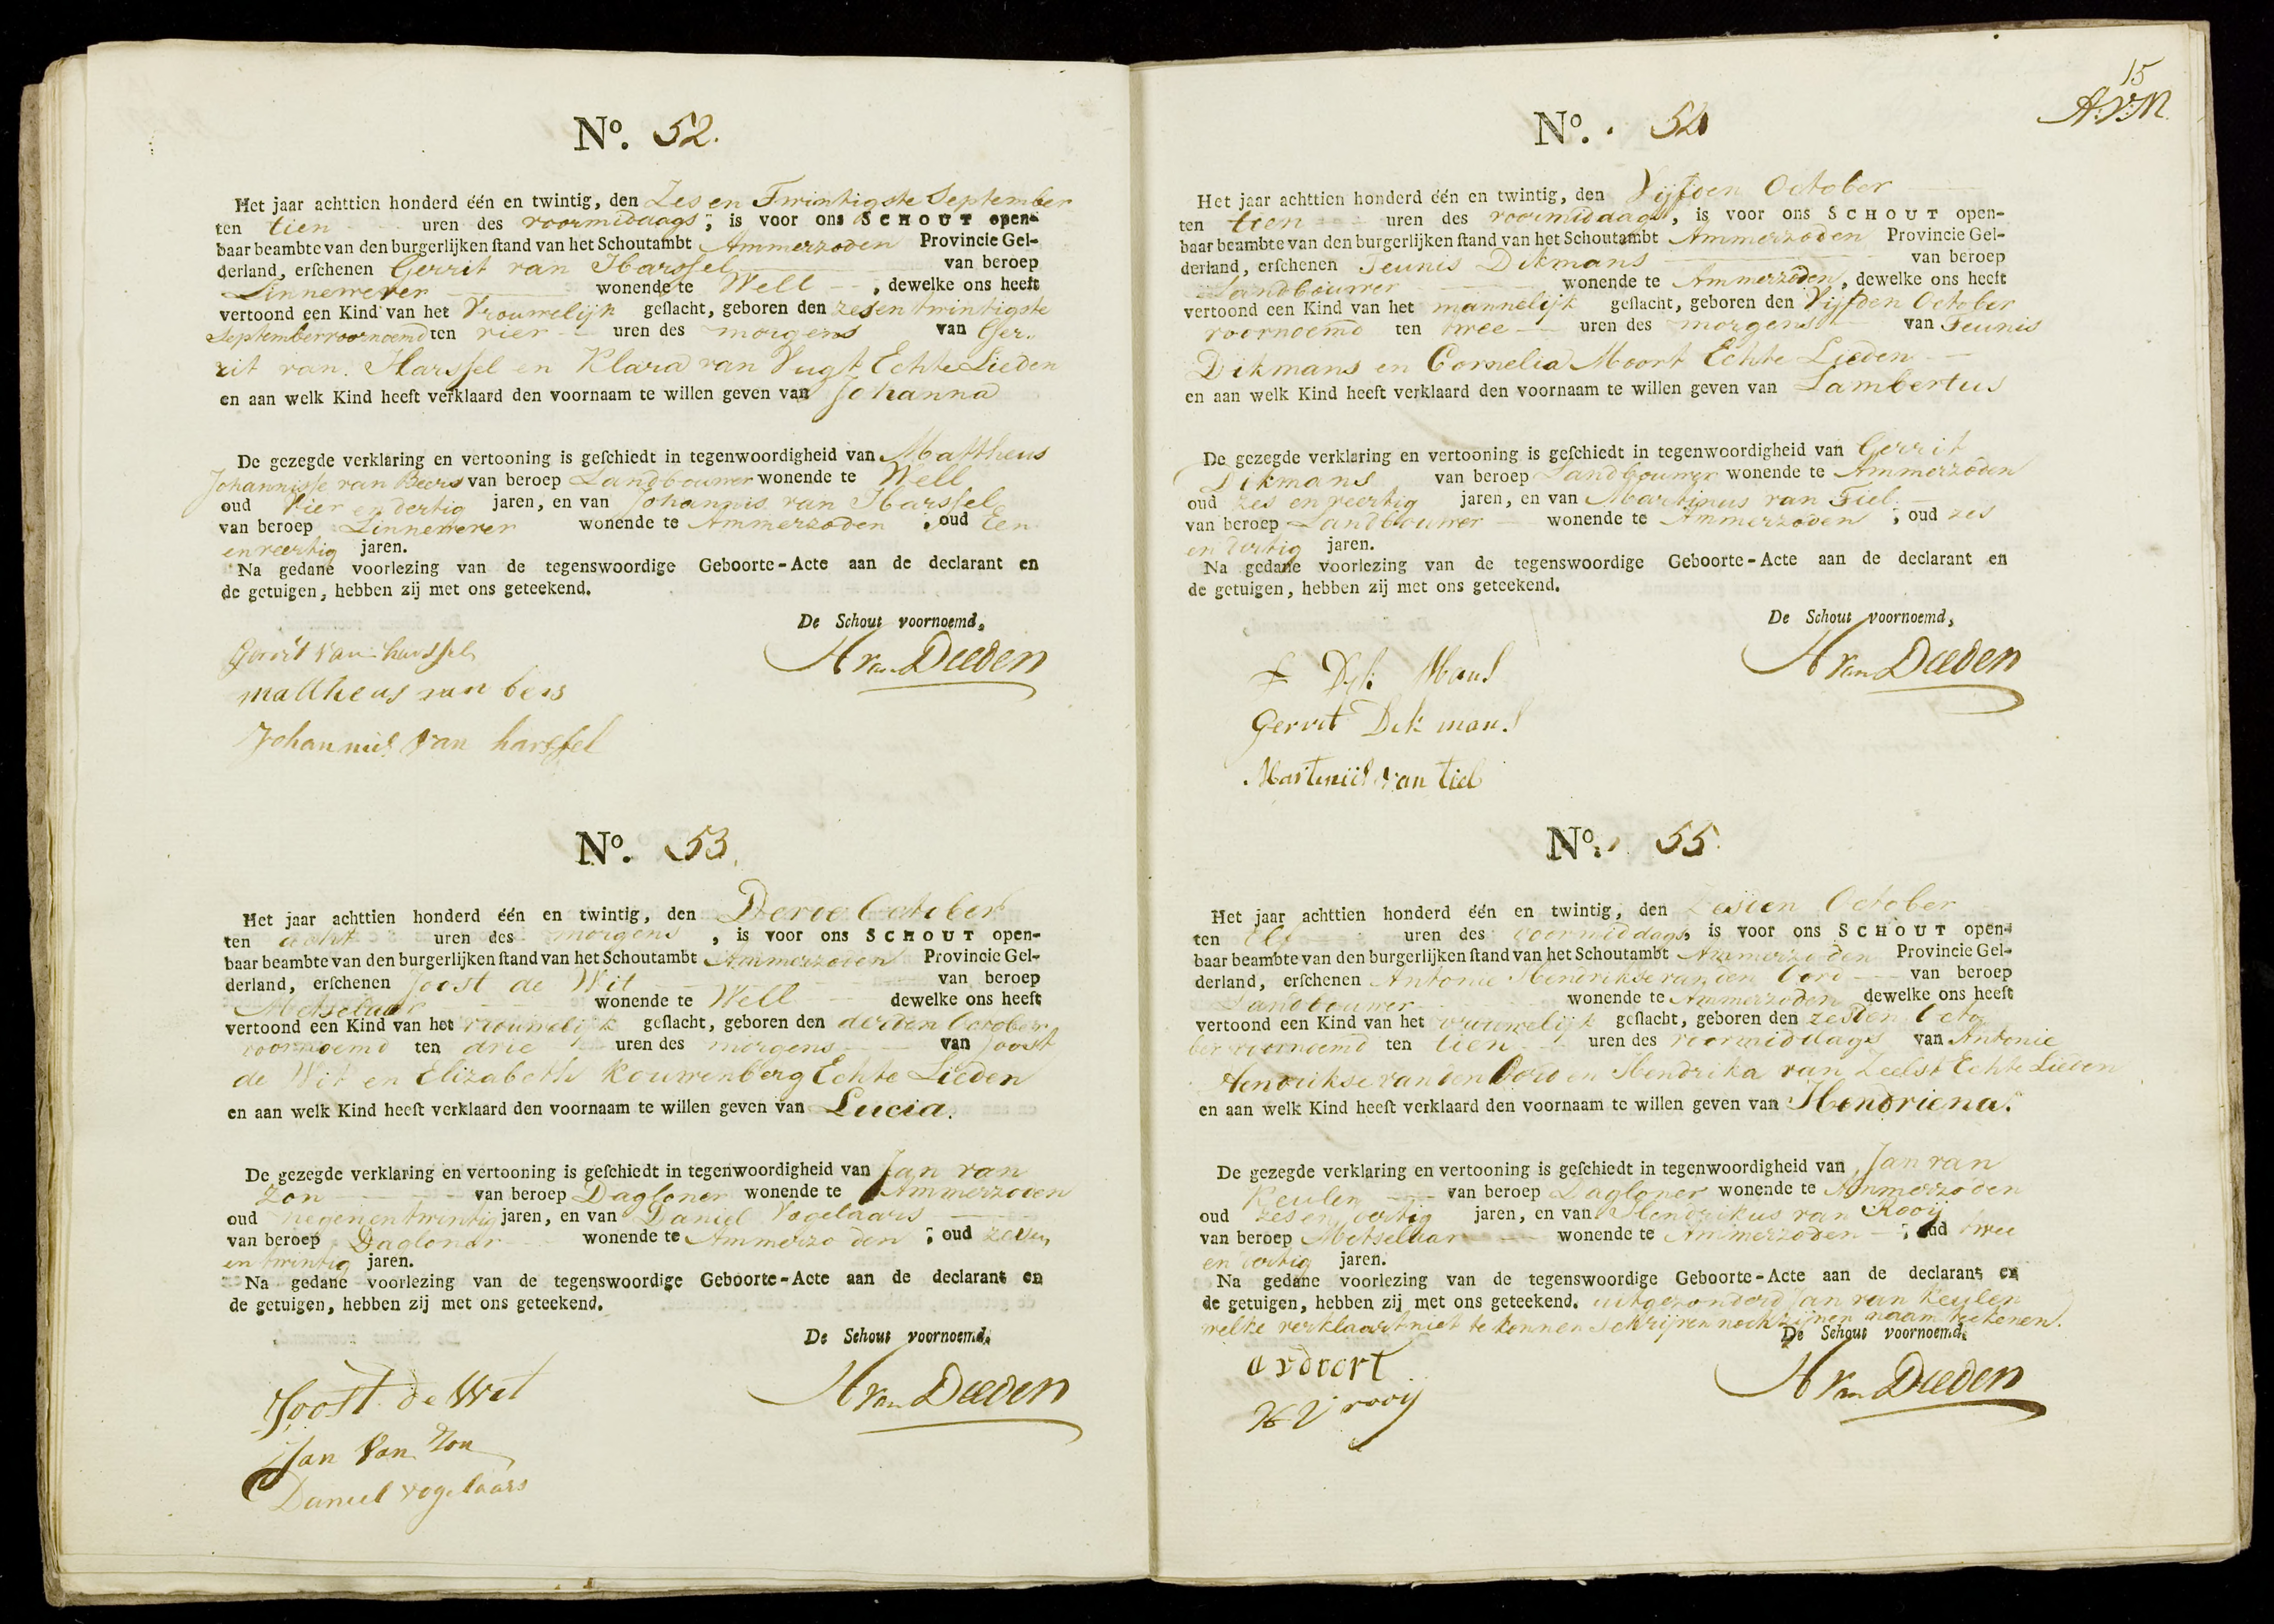 No. 52.
Het jaar achttien honderd één en twintig, den Zes en Twintigste September
ten tien uren des voormiddags, is voor ons SCHOUT open-
baar beambte van den burgerlijken stand van het Schoutambt Ammerzoden Provincie Gel-
derland, erschenen Gerrit van Harssel van beroep
Linnewever wonende te Well, dewelke ons heeft
vertoond een Kind van het Vrouwelijk geslacht, geboren den zesentwintigste
September voornoemd ten vier uren des morgens van Ger-
rit van Harssel en Klara van Vugt Echte Lieden
en aan welk Kind heeft verklaard den voornaam te willen geven van Johanna
De gezegde verklaring en vertooning is geschiedt in tegenwoordigheid van Mattheus
Johannisse van Beers van beroep Landbouwer wonende te Well
oud Vier en dertig jaren, en van Johannis van Harssel
van beroep Linnewever wonende te Ammerzoden, oud Een
en veertig jaren.
Na gedane voorlezing van de tegenswoordige Geboorte-Acte aan de declarant en
de getuigen, hebben zij met ons geteekend.
De Schout voornoemd,
Gerrit van harssel
H van Deeden
mattheus van bers
Johannis van harssel
No. 53.
Het jaar achttien honderd één en twintig, den Derde October
ten acht uren des morgens, is voor ons SCHOUT open-
baar beambte van den burgerlijken stand van het Schoutambt Ammerzoden Provincie Gel-
derland, erschenen Joost de Wit van beroep
Metselaar wonende te Well dewelke ons heeft
vertoond een Kind van het vrouwelijk geslacht, geboren den derden October
voornoemd ten drie uren des morgens van Joost
de Wit en Elizabeth Kouwenberg Echte Lieden
en aan welk Kind heeft verklaard den voornaam te willen geven van Lucia.
De gezegde verklaring en vertooning is geschiedt in tegenwoordigheid van Jan van
Zon van beroep Dagloner wonende te Ammerzoden
oud negen en twintig jaren, en van Daniel Vogelaars
van beroep Dagloner wonende te Ammerzoden; oud zeven
en twintig jaren.
Na gedane voorlezing van de tegenswoordige Geboorte-Acte aan de declarant en
de getuigen, hebben zij met ons geteekend.
De Schout voornoemd,
Joost de Wit
H van Deeden
Jan Van Zon
Daniel vogelaars
15
A.V.M.
No. 54
Het jaar achttien honderd één en twintig, den Vijfden October
ten tien uren des voormiddags, is voor ons SCHOUT open-
baar beambte van den burgerlijken stand van het Schoutambt Ammerzoden Provincie Gel-
derland, erschenen Teunis Dikmans van beroep
Landbouwer wonende te Ammerzoden, dewelke ons heeft
vertoond een Kind van het mannelijk geslacht, geboren den Vijfden October
voornoemd ten twee uren des morgens van Teunis
Dikmans en Cornelia Moort Echte Lieden
en aan welk Kind heeft verklaard den voornaam te willen geven van Lambertus
De gezegde verklaring en vertooning is geschiedt in tegenwoordigheid van Gerrit
Dikmans van beroep Landbouwer wonende te Ammerzoden
oud zes en veertig jaren, en van Martinus van Tiel
van beroep Landbouwer wonende te Ammerzoden; oud zes
en dertig jaren.
Na gedane voorlezing van de tegenswoordige Geboorte-Acte aan de declarant en
de getuigen, hebben zij met ons geteekend.
De Schout voornoemd,
Dyk Mans
H van Deeden
Gerrit Dikmans
Martinus van tiel
No. 55.
Het jaar achttien honderd één en twintig, den Zesden October
ten Elf uren des voormiddags, is voor ons SCHOUT open-
baar beambte van den burgerlijken stand van het Schoutambt Ammerzoden Provincie Gel-
derland, erschenen Antonie Hendrikse van den Oord van beroep
Landbouwer wonende te Ammerzoden dewelke ons heeft
vertoond een Kind van het vrouwelijk geslacht, geboren den zesden Octo
ber voornoemd ten tien uren des voormiddags van Antonie
Hendrikse van den Oord en Hendrika van Zeelst Echte Lieden
en aan welk Kind heeft verklaard den voornaam te willen geven van Hendriena.
De gezegde verklaring en vertooning is geschiedt in tegenwoordigheid van Jan van
Keulen van beroep Dagloner wonende te Ammerzoden
oud zes en dertig jaren, en van Hendrikus van Rooij
van beroep Metselaar wonende te Ammerzoden; oud twee
en dertig jaren.
Na gedane voorlezing van de tegenswoordige Geboorte-Acte aan de declarant en
de getuigen, hebben zij met ons geteekend. uitgezonderd Jan van Keulen
welke verklaart niet te konnen schrijven noch zijnen naam teekenen.
De Schout voornoemd,
a v d oort
H van Deeden
H V rooij